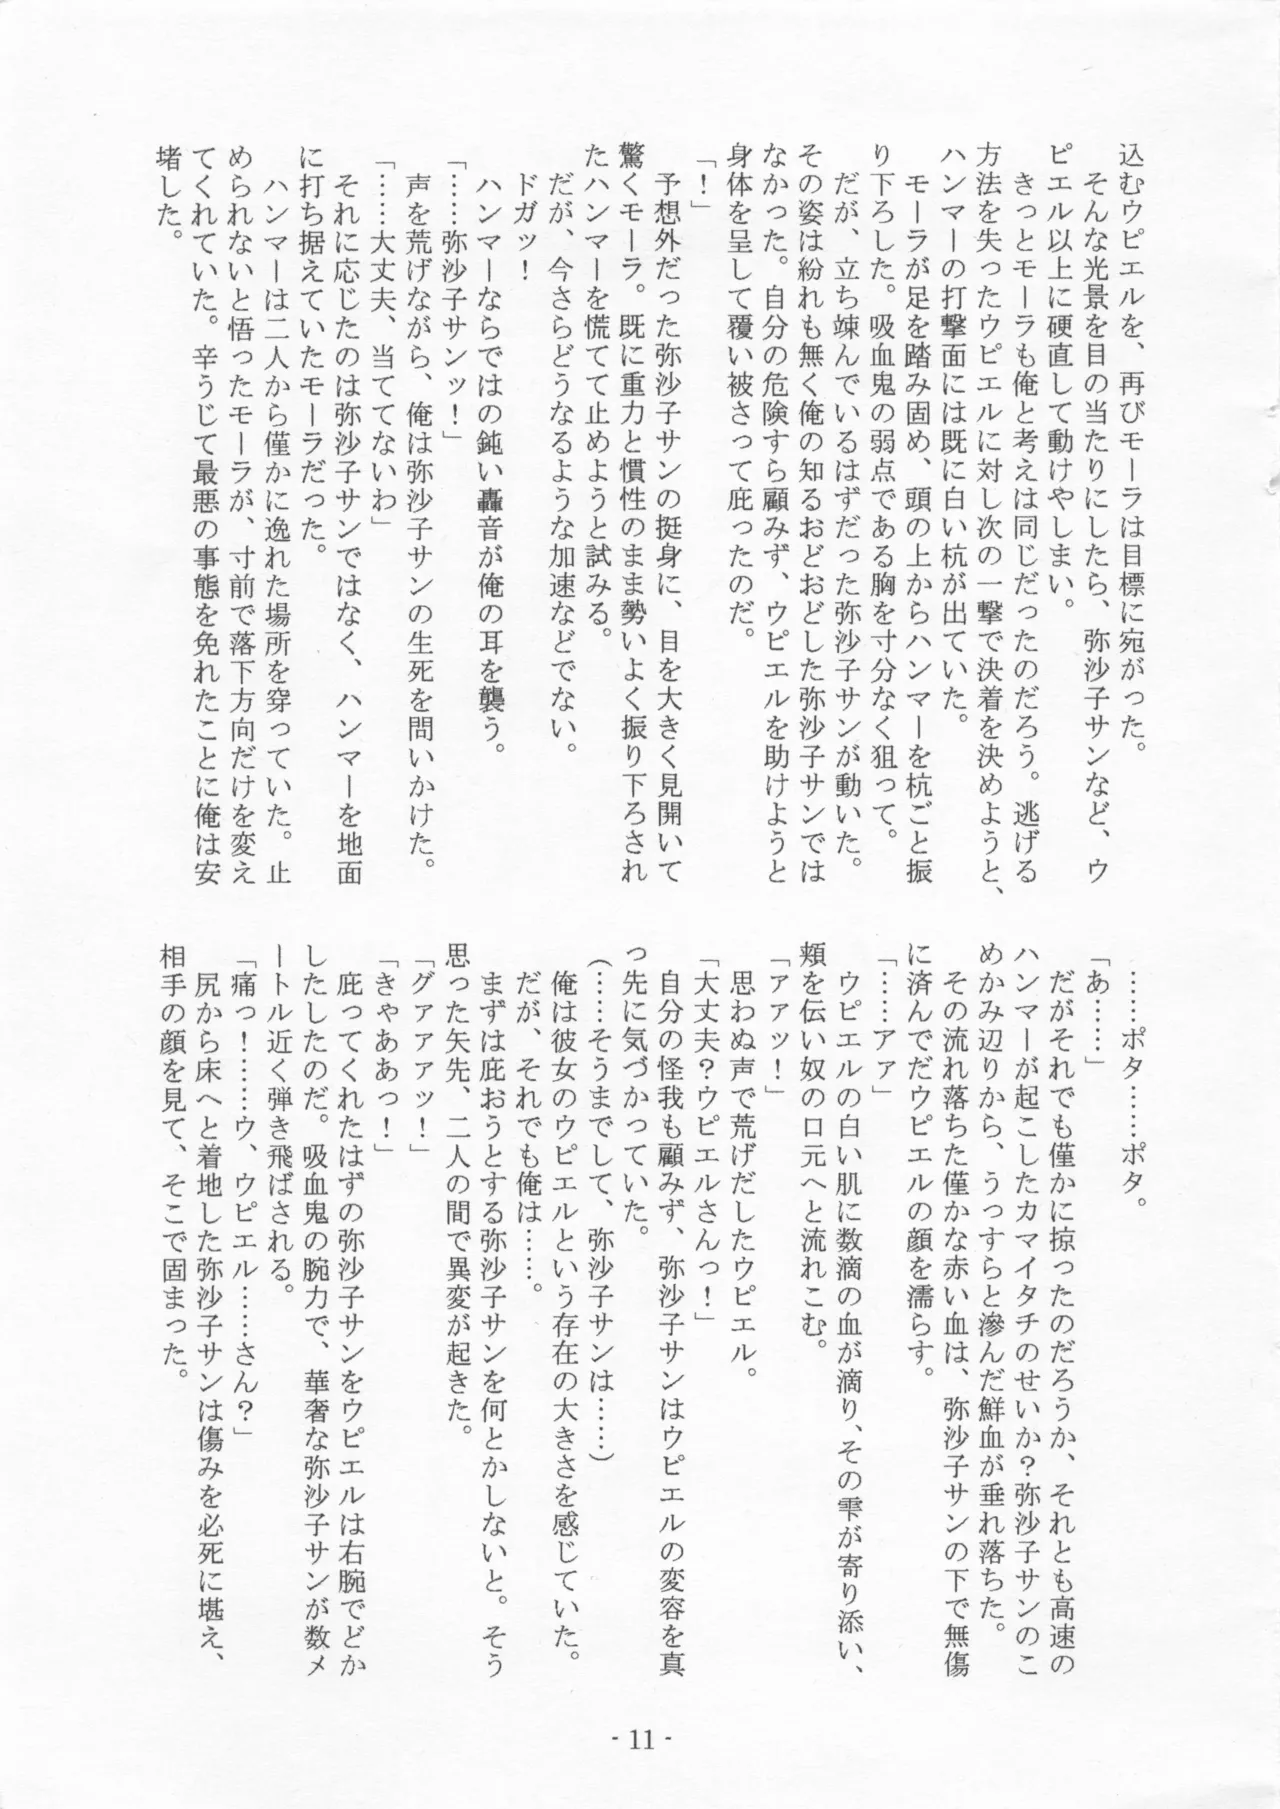 込むウピエルを、再びモーラは目標に宛がった。
　そんな光景を目の当たりにしたら、弥沙子サンなど、ウ
ピエル以上に硬直して動けやしまい。
　きっとモーラも俺と考えは同じだったのだろう。逃げる
方法を失ったウピエルに対し次の一撃で決着を決めようと、
ハンマーの打撃面には既に白い杭が出ていた。
　モーラが足を踏み固め、頭の上からハンマーを杭ごと振
り下ろした。吸血鬼の弱点である胸を寸分なく狙って。
　だが、立ち竦んでいるはずだった弥沙子サンが動いた。
その姿は紛れも無く俺の知るおどおどした弥沙子サンでは
なかった。自分の危険すら顧みず、ウピエルを助けようと
身体を呈して覆い被さって庇ったのだ。
「！」
　予想外だった弥沙子サンの挺身に、目を大きく見開いて
驚くモーラ。既に重力と慣性のまま勢いよく振り下ろされ
たハンマーを慌てて止めようと試みる。
　だが、今さらどうなるような加速などでない。
　ドガッ！
　ハンマーならではの鈍い轟音が俺の耳を襲う。
「……弥沙子サンッ！」
　声を荒げながら、俺は弥沙子サンの生死を問いかけた。
「……大丈夫、当ててないわ」
　それに応じたのは弥沙子サンではなく、ハンマーを地面
に打ち据えていたモーラだった。
　ハンマーは二人から僅かに逸れた場所を穿っていた。止
められないと悟ったモーラが、寸前で落下方向だけを変え
てくれていた。辛うじて最悪の事態を免れたことに俺は安
堵した。
　……ポタ……ポタ。
「あ……」
　だがそれでも僅かに掠ったのだろうか、それとも高速の
ハンマーが起こしたカマイタチのせいか？弥沙子サンのこ
めかみ辺りから、うっすらと滲んだ鮮血が垂れ落ちた。
　その流れ落ちた僅かな赤い血は、弥沙子サンの下で無傷
に済んでだウピエルの顔を濡らす。
「……アァ」
　ウピエルの白い肌に数滴の血が滴り、その雫が寄り添い、
頬を伝い奴の口元へと流れこむ。
「アァッ！」
　思わぬ声で荒げだしたウピエル。
「大丈夫？ウピエルさんっ！」
　自分の怪我も顧みず、弥沙子サンはウピエルの変容を真
っ先に気づかっていた。
（……そうまでして、弥沙子サンは……）
　俺は彼女のウピエルという存在の大きさを感じていた。
　だが、それでも俺は……。
　まずは庇おうとする弥沙子サンを何とかしないと。そう
思った矢先、二人の間で異変が起きた。
「グァァァッ！」
「きゃああっ！」
　庇ってくれたはずの弥沙子サンをウピエルは右腕でどか
したしたのだ。吸血鬼の腕力で、華奢な弥沙子サンが数メ
ートル近く弾き飛ばされる。
「痛っ！……ウ、ウピエル……さん？」
　尻から床へと着地した弥沙子サンは傷みを必死に堪え、
相手の顔を見て、そこで固まった。
- 11 -